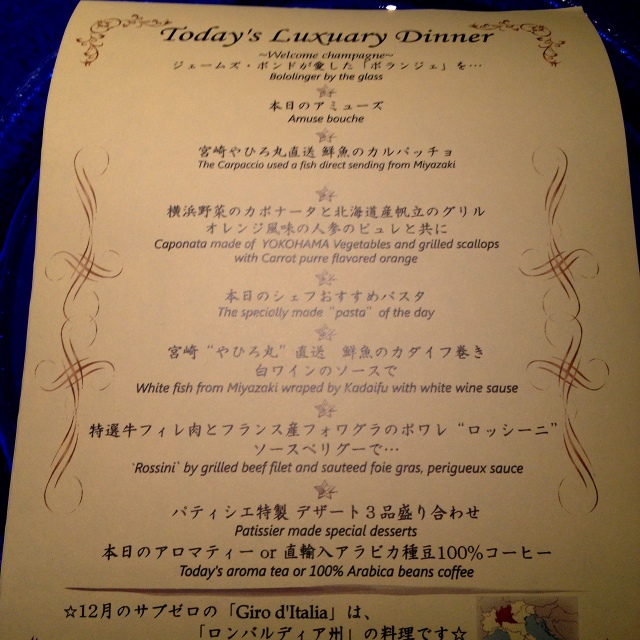 Today's Luxuary Dinner
~Welcome champagne~
ジェームズ・ボンドが愛した「ボランジェ」を…
Bololinger by the glass
本日のアミューズ
Amuse bouche
宮崎やひろ丸直送 鮮魚のカルパッチョ
The Carpaccio used a fish direct sending from Miyazaki
横浜野菜のカポナータと北海道産帆立のグリル
オレンジ風味の人参のピュレと共に
Caponata made of YOKOHAMA Vegetables and grilled scallops
with Carrot purre flavored orange
本日のシェフおすすめパスタ
The specially made "pasta" of the day
宮崎“やひろ丸”直送 鮮魚のカダイフ巻き
白ワインのソースで
White fish from Miyazaki wraped by Kadaifu with white wine sause
特選牛フィレ肉とフランス産フォワグラのポワレ“ロッシーニ”
ソースペリグーで…
'Rossini' by grilled beef filet and sauteed foie gras, perigueux sauce
パティシエ特製 デザート３品盛り合わせ
Patissier made special desserts
本日のアロマティー or 直輸入アラビカ種豆100%コーヒー
Today's aroma tea or 100% Arabica beans coffee
☆12月のサブゼロの「Giro d'Italia」は、
「ロンバルディア州」の料理です☆